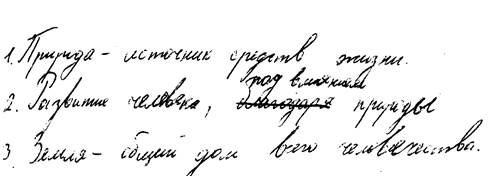 1. Природа - источник средств жизни.
под влиянием
2. Развитие человека, благодаря природы
3. Земля - общий дом всего человечества.